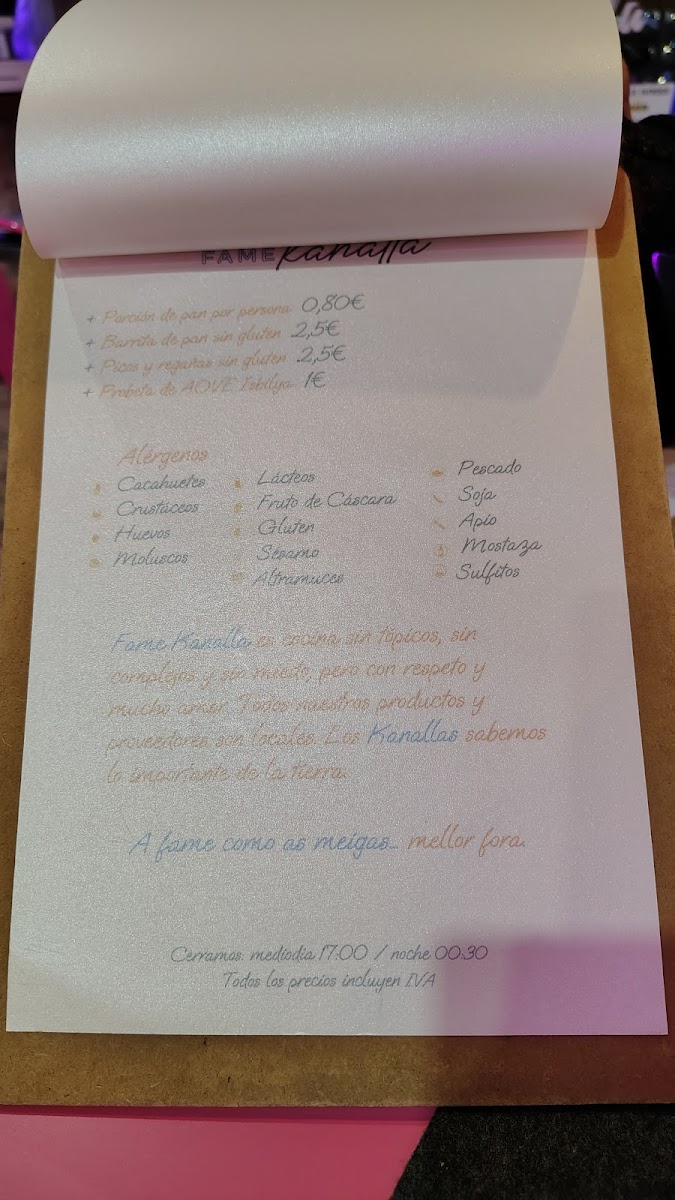 FAME Kanalla
+ Porción de pan por persona 0,80€
+ Barrita de pan sin gluten 2,5€
+ Picos y regañas sin gluten 2,5€
+ Probeta de AOVE Isbilya 1€
Alérgenos
Cacahuetes
Crustáceos
Huevos
Moluscos
Lácteos
Fruto de Cáscara
Gluten
Sésamo
Altramuces
Pescado
Soja
Apio
Mostaza
Sulfitos
Fame Kanalla es cocina sin tópicos, sin
complejos y sin miedo, pero con respeto y
mucho amor. Todos nuestros productos y
proveedores son locales. Los Kanallas sabemos
lo importante de la tierra.
A fame como as meigas... mellor fora.
Cerramos: mediodía 17:00 / noche 00:30
Todos los precios incluyen IVA